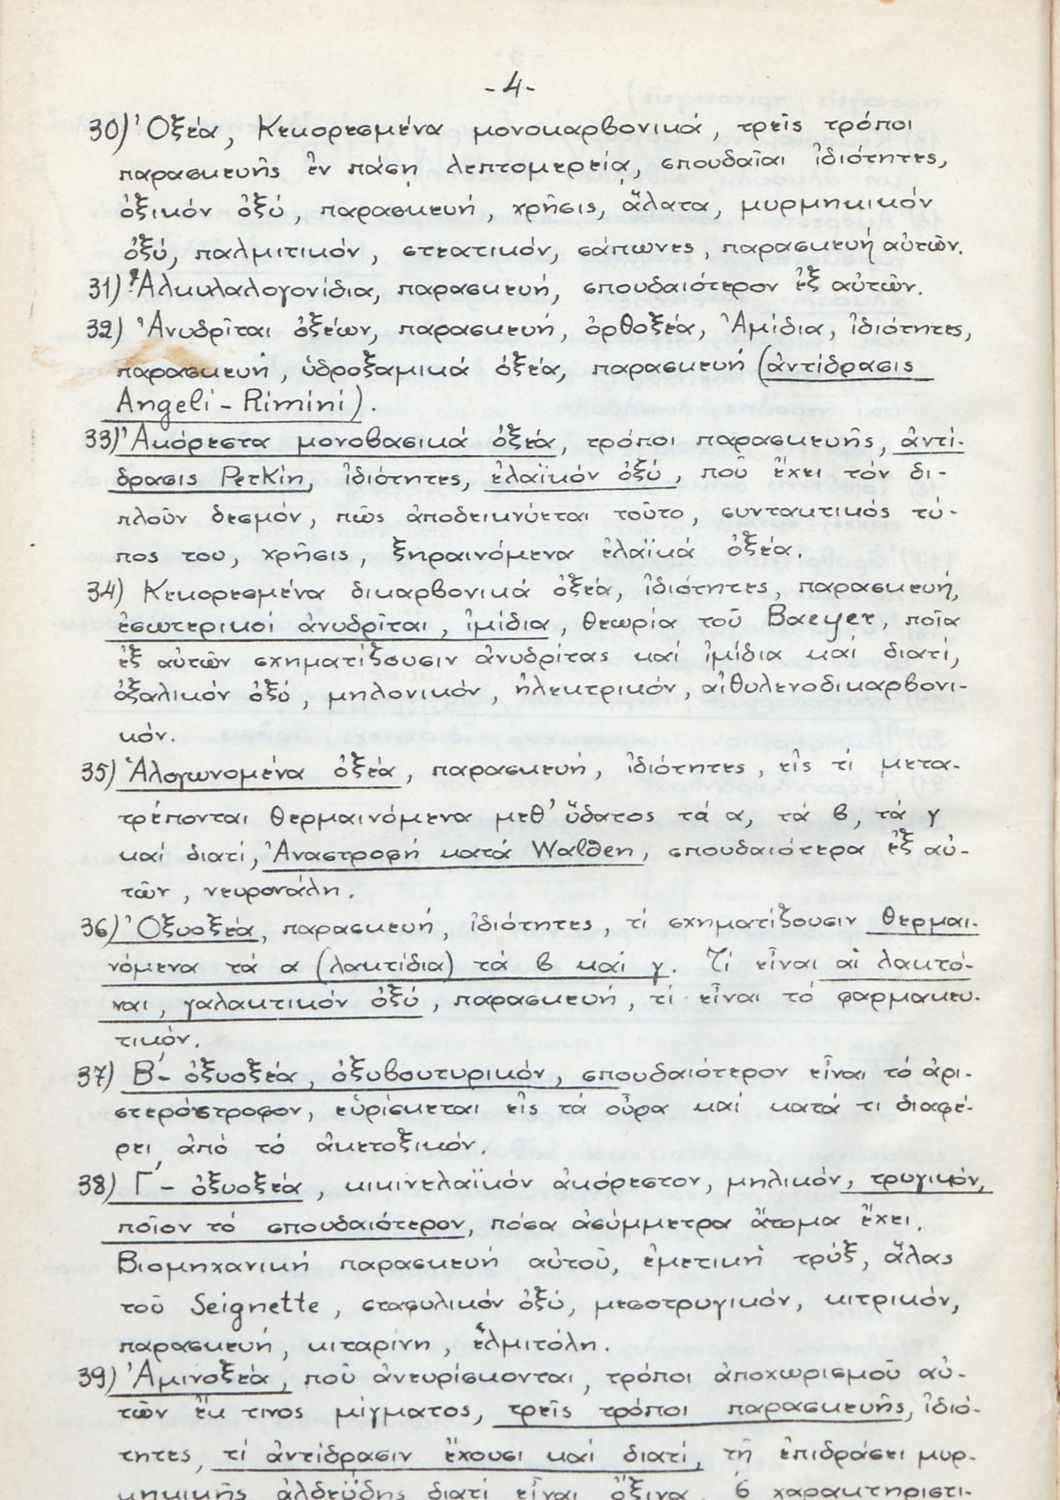 -4-
30) Ὀξέα, Κεκορεσμένα μονοκαρβονικά, τρεῖς τρόποι
παρασκευῆς ἐν πάσῃ λεπτομερείᾳ, σπουδαῖαι ἰδιότητες,
ὀξικόν ὀξύ, παρασκευή, χρῆσις, ἅλατα, μυρμηκικόν
ὀξύ, παλμιτικόν, στεατικόν, σάπωνες, παρασκευή αὐτῶν.
31) Ἀλκυλαλογονίδια, παρασκευή, σπουδαιότερον ἐξ αὐτῶν.
32) Ἀνυδρῖται ὀξέων, παρασκευή, ὀρθοξέα, Ἀμίδια, ἰδιότητες,
παρασκευή, ὑδροξαμικά ὀξέα, παρασκευή (ἀντίδρασις
Angeli-Rimini).
33) Ἀκόρεστα μονοβασικά ὀξέα, τρόποι παρασκευῆς, ἀντί-
δρασις Perkin, ἰδιότητες, ἐλαϊκόν ὀξύ, ποῦ ἔχει τόν δι-
πλοῦν δεσμόν, πῶς ἀποδεικνύεται τοῦτο, συντακτικός τύ-
πος του, χρῆσις, ξηραινόμενα ἐλαϊκά ὀξέα.
34) Κεκορεσμένα δικαρβονικά ὀξέα, ἰδιότητες, παρασκευή,
ἐσωτερικοί ἀνυδρῖται, ἰμίδια, θεωρία τοῦ Baeyer, ποῖα
ἐξ αὐτῶν σχηματίζουσιν ἀνυδρίτας καί ἰμίδια καί διατί,
ὀξαλικόν ὀξύ, μηλονικόν, ἠλεκτρικόν, αἰθυλενοδικαρβονι-
κόν.
35) Ἁλογωνομένα ὀξέα, παρασκευή, ἰδιότητες, εἰς τί μετα-
τρέπονται θερμαινόμενα μεθ' ὕδατος τά α, τά β, τά γ
καί διατί, Ἀναστροφή κατά Walden, σπουδαιότερα ἐξ αὐ-
τῶν, νευρονάλη.
36) Ὀξυοξέα, παρασκευή, ἰδιότητες, τί σχηματίζουσιν θερμαι-
νόμενα τά α (λακτίδια) τά β καί γ. Τί εἶναι αἱ λακτό-
ναι, γαλακτικόν ὀξύ, παρασκευή, τί εἶναι τό φαρμακευ-
τικόν.
37) Β'- ὀξυοξέα, ὀξυβουτυρικόν, σπουδαιότερον εἶναι τό ἀρι-
στερόστροφον, εὑρίσκεται εἰς τά οὖρα καί κατά τι διαφέ-
ρει ἀπό τό ἀκετοξικόν.
38) Γ'- ὀξυοξέα, κικινελαϊκόν ἀκόρεστον, μηλικόν, τρυγικόν,
ποῖον τό σπουδαιότερον, πόσα ἀσύμμετρα ἄτομα ἔχει.
Βιομηχανική παρασκευή αὐτοῦ, ἐμετική τρύξ, ἅλας
τοῦ Seignette, σταφυλικόν ὀξύ, μεσοτρυγικόν, κιτρικόν,
παρασκευή, κιταρίνη, ἑλμιτόλη.
39) Ἀμινοξέα, ποῦ ἀνευρίσκονται, τρόποι ἀποχωρισμοῦ αὐ-
τῶν ἔκ τινος μίγματος, τρεῖς τρόποι παρασκευῆς, ἰδιό-
τητες, τί ἀντίδρασιν ἔχουσι καί διατί, τῇ ἐπιδράσει μυρ-
μηκικῆς ἀλδεΰδης διατί εἶναι ὄξινα, 6 χαρακτηριστι-